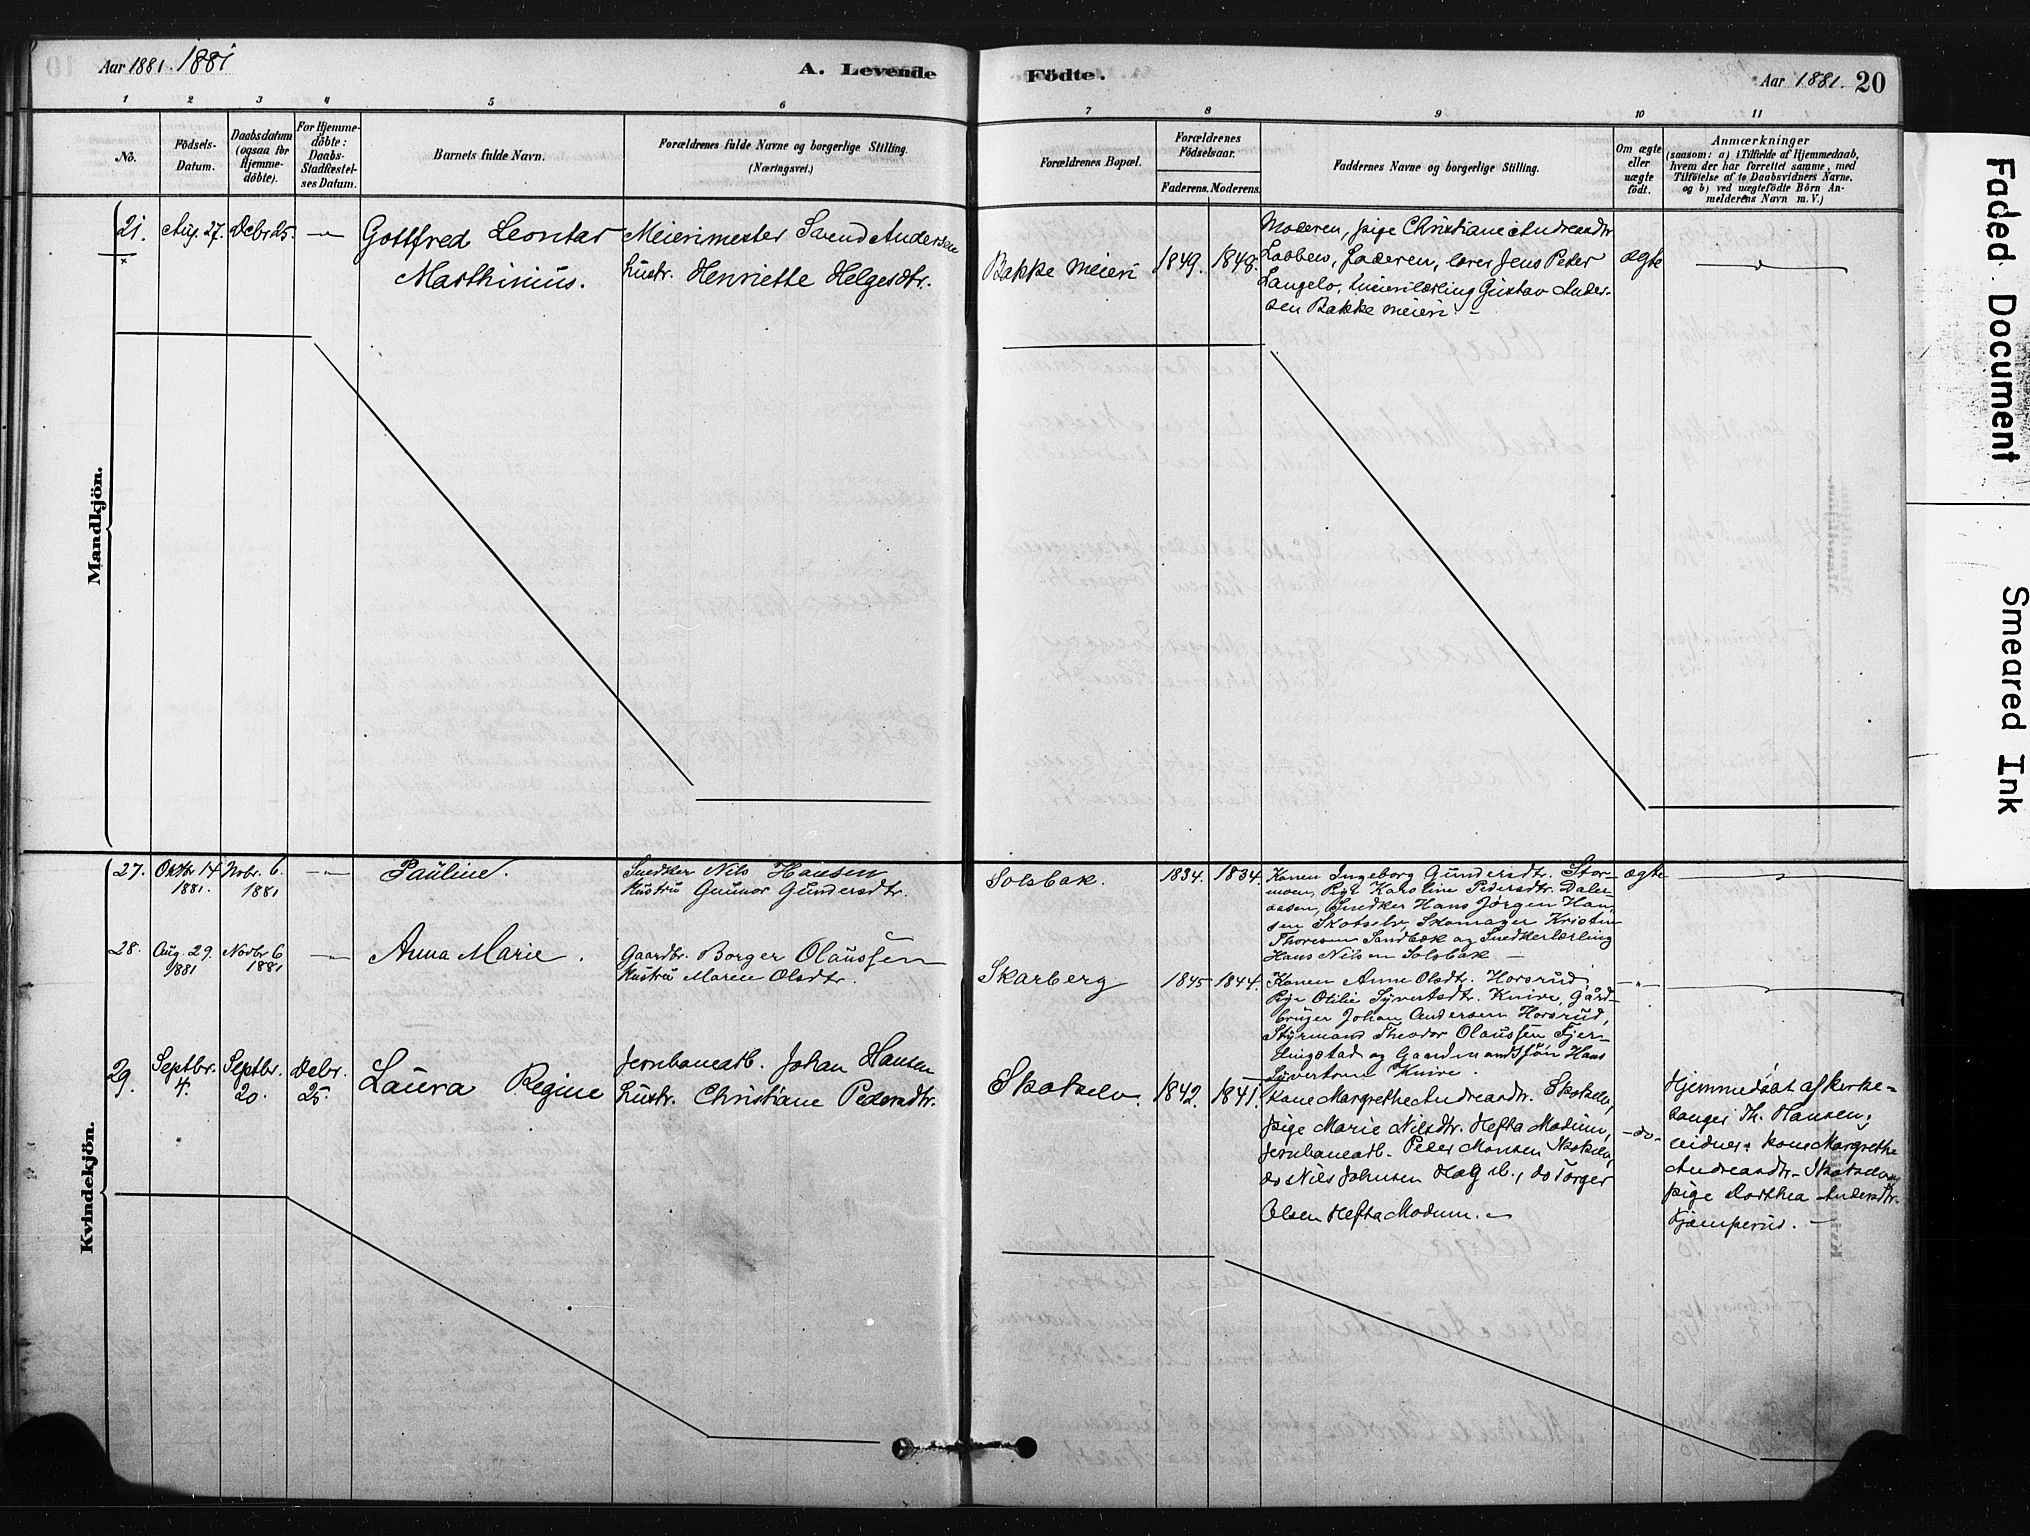 Aar 1881. 1881
A. Levende Födte.
Aar 1881. 20
1 2 3 4 5 6 7 8 9 10 11
No.
Födsels-Datum.
Daabsdatum (ogsaa for Hjemme-döbte).
For Hjemme-döbte: Daabs-Stadfæstel-ses Datum.
Barnets fulde Navn.
Forældrenes fulde Navne og borgerlige Stilling.
(Næringsvei.)
Forældrenes Bopæl.
Forældrenes Födselsaar.
Faderens. Moderens.
Faddernes Navne og borgerlige Stilling.
Om ægte eller uægte födt.
Anmærkninger
(saasom: a) i Tilfælde af Hjemmedaab,
hvem der har forrettet samme, med
Tilföielse af to Daabsvidners Navne.
og b) ved uægtefödte Börn An-
melderens Navn m.V.)
Mandkjön.
21. Aug. 27. Debr 25. — Gottfred Leontas
Marthinius.
Meierimester Svend Andersen
Hustr. Henriette Helgesdtr.
Bakke Meieri 1849. 1848.
Moderen, pige Christiane Andreasdtr
Labbers, Faderen, lærer Jens Peter
Langelo, Meierilærling Gustav Ander-
sen Bakke meieri. —
ægte
Kvindekjön.
27. Oktbr 14 1881. Novbr. 6. 1881 — Pauline.
Snedker Nils Hansen
Hustru Gunnor Gundersdtr.
Solsbak. 1834. 1834.
Konen Ingeborg Gundersdtr. Stor-
moen, Pige Karoline Pedersdtr. Daler-
aasen, Snedker Hans Jørgen Han-
sen Skotselv, Skomager Kristian
Thoresen Sandbæk og Snedkerlærling
Hans Nilsen Solsbak —
ægte
28. Aug. 29. 1881 Novbr 6 1881 — Anna Marie.
Gaardbr. Borger Olaussen
Hustru Maren Olsdtr.
Skarberg 1845 1844.
Konen Anne Olsdtr. Horsrud,
Pige Otilie Syvertsdtr. Knive, Gård-
bruger Johan Andersen Horsrud,
Styrmand Theodor Olaussen Fjer-
dingstad og Gaardmandssøn Hans
Syvertsen Knive.
— " —
29. Septbr. 4. Septbr. 20. Debr. 25. Laura Regine
Jernbanearb. Johan Hansen
Hustr. Christiane Pedersdtr.
Skotselv. 1842. 1841.
Kone Margrethe Andreasdtr. Skotselv,
pige Marie Nilsdtr. Hefta Modum,
Jernbanearb. Peter Monsen Skotselv,
do Nils Johnsen Hag ib., do Torger
Olsen Hefta Modum. —
— do —
Hjemmedøbt af Kirke-
sanger Th. Hansen,
vidner: kone Margrethe
Andreasdtr. Skotselv,
pige Dorthea Andersdtr.
Kjæmperud. —
Faded Document
Smeared Ink